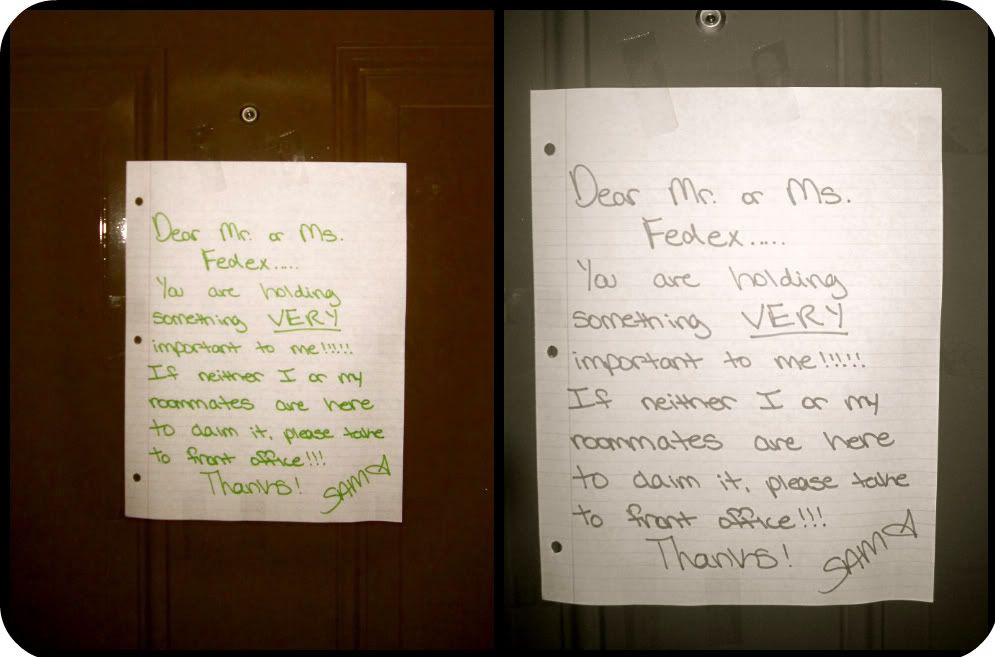 Dear Mr. or Ms.
Fedex.....
You are holding
something VERY
important to me!!!!!
If neither I or my
roommates are here
to claim it, please take
to front office!!!
Thanks! SAM
Dear Mr. or Ms.
Fedex.....
You are holding
something VERY
important to me!!!!!
If neither I or my
roommates are here
to claim it, please take
to front office!!!
Thanks! SAM